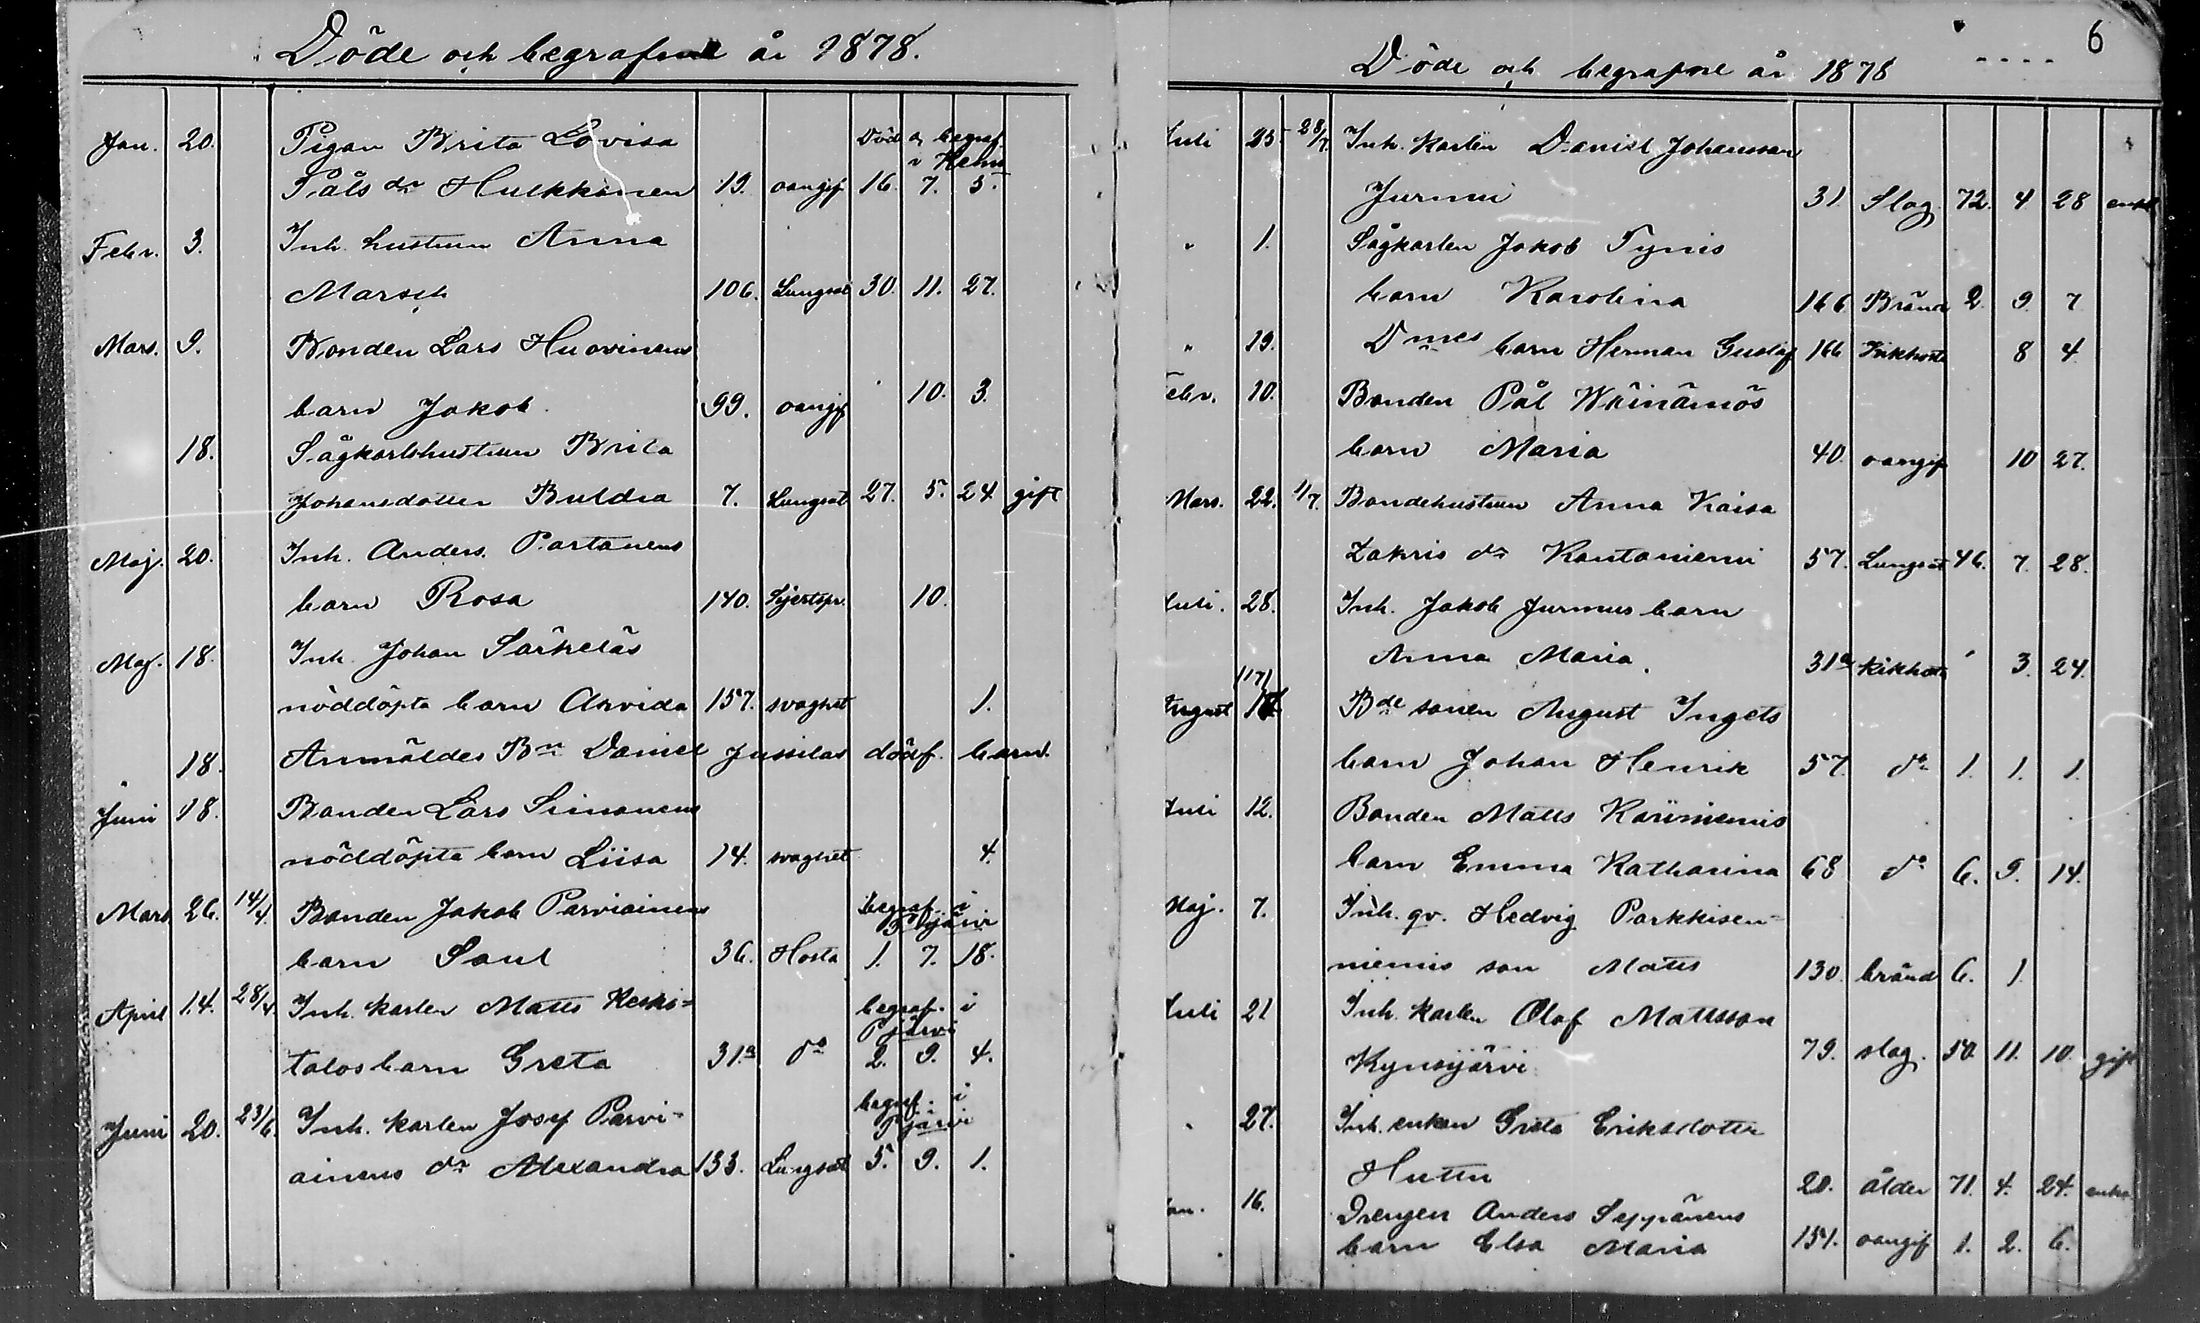 Döde och begrafne år 1878.
Jan. 20. Pigan Brita Lovisa Död o. begraf.
i Kemi
Påls dr Hulkkonen 19. oangif 16. 7. 5.
Febr. 3. Inh. hustrun Anna
Marsch 106. Lungsot 30. 11. 27.
Mars. 9. Bonden Lars Huovinens
barn Jakob 99. oangif 10. 3.
18. Sågkarlshustrun Brita
Johansdotter Buldra 7. Lungsot 27. 5. 24 gift
Maj. 20. Inh. Anders Partanens
barn Rosa 140. Hjertspr. 10.
Maj. 18. Inh. Johan Särkeläs
nöddöpta barn Arvida 157. svaghet 1.
18. Anmäldes Bn Daniel Jussilas dödf. barn
Juni 18. Bonden Lars Simonens
nöddöpta barn Liisa 14. svaghet 4.
Mars 26. 14/4. Bonden Jakob Parviainens begraf. i
P.järvi
barn Saul 36. Hosta 1. 7. 18.
April 14. 28/4. Inh. karlen Matts Keski= begraf. i
P.järvi
talos barn Greta 31a do 2. 9. 4.
Juni 20. 23/6. Inh. karlen Josef Parvi- begraf. i
P.järvi
ainens dr Alexandra 133. Lungsot 5. 9. 1.
6
Döde och begrafne år 1878
Juli 25 28/7. Inh. karlen Daniel Johansson
Jurmu 31 Slag. 72. 4 28 enkl
" 1. Sågkarlen Jakob Tynis
barn Karolina 166 Bränd 2 9. 7
" 19. Dnnes barn Herman Gustaf 166 Kikhosta 8 4
Febr. 10. Bonden Pål Wäinämös
barn Maria 40. oangif 10 27.
Mars. 22. 1/7. Bondehustrun Anna Kaisa
Zakris dr Kantoniemi 57. Lungsot 46. 7. 28.
Juli. 28. Inh. Jakob Jurmus barn
Anna Maria. 31a kikhosta 3. 24.
August Bde sonen August Ingets
barn Johan Henrik 57. do 1. 1. 1.
Juli 12. Bonden Matts Kariniemis
barn Emma Katharina 68 do 6. 9. 14.
Maj. 7. Inh. qv. Hedvig Parkkisen=
niemis son Matts 130. bränd 6. 1
Juli 21 Inh. karlen Olof Mattsson
Kynsijärvi 79. slag. 50. 11. 10. gift
" 27. Inh. enkan Greta Eriksdotter
Huttu 20. ålder 71. 4. 24. enka
Jan. 16. Drengen Anders Seppänens
barn Elsa Maria 151. oangif 1. 2. 6.